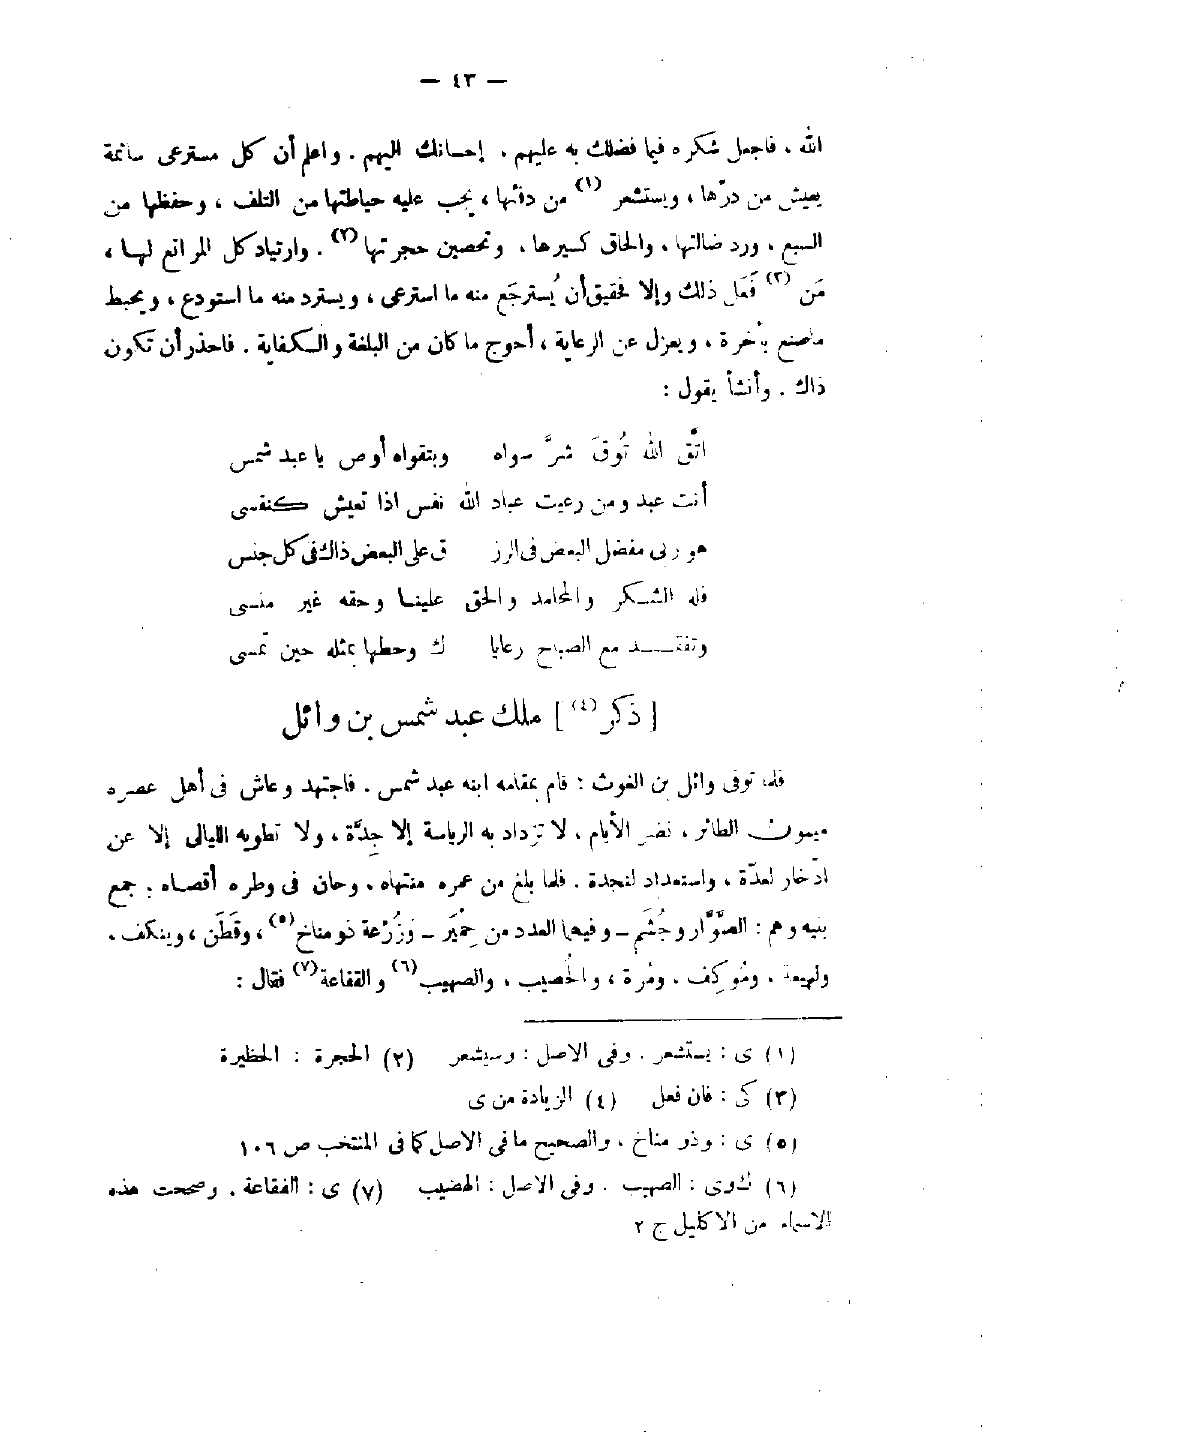 — ٤٣ —
الله ، فاجعل شكره فيما فضلك به عليهم ، إحسانك اليهم . واعلم أن كل مسترعى سائمة
يعيش من درّها ، ويستشعر (١) من دفئها ، يجب عليه حياطتها من التلف ، وحفظها من
السبع ، ورد ضالتها ، والحاق كسيرها ، وتحصين حجرتها (٢) . وارتياد كل المراتع لها ،
مَن (٣) فَعَل ذلك وإلا فحقيق أن يُسترجَع منه ما استرعى ، ويسترد منه ما استودع ، ويحبط
ماصنع بأخرة ، ويعزل عن الرعاية ، أحوج ما كان من البلغة والكفاية . فاحذر أن تكون
ذاك . وأنشأ يقول :
اتَّق الله تُوقَ شرَّ سواه وبتقواه أوص يا عبد شمس
أنت عبد ومن رعيت عباد الله نفس اذا تعيش كنفسى
هو ربى مفضل البعض فى الرز ق على البعض ذاك فى كل جنس
فله الشكر والمحامد والحق علينا وحقه غير منسى
وتفقد مع الصباح رعايا ك وحطها بمثله حين تمسى
[ ذكر (٤) ] ملك عبد شمس بن وائل
فلما توفى وائل بن الغوث : قام بمقامه ابنه عبد شمس . فاجتهد وعاش فى أهل عصره
ميمون الطائر ، نضر الأيام ، لا تزداد به الرياسة إلا جِدَّة ، ولا تطويه الليالى إلا عن
ادّخار لعدّة ، واستعداد لنجدة . فلما بلغ من عمره منتهاه ، وحان فى وطره أقصاه : جمع
بنيه وهم : الصَّوَّار وجُشَم – وفيهما العدد من حِمْيَر – وزُرْعة ذو مناخ (٥) ، وقَطَن ، وينكف ،
ولهيعة ، ومُوكِف ، ومُرة ، والخُصيب ، والصهيب (٦) والقفاعة (٧) فقال :
(١) ى : يستشعر . وفى الاصل : وسيشعر (٢) الحجرة : الحظيرة
(٣) كى : فان فعل (٤) الزيادة من ى
(٥) ى : وذو مناخ ، والصحيح ما فى الاصل كما فى المنتخب ص ١٠٦
(٦) ك وى : الصهيب . وفى الاصل : الهضيب (٧) ى : الفقاعة . وصححت هذه
الاسماء من الاكليل ج ٢